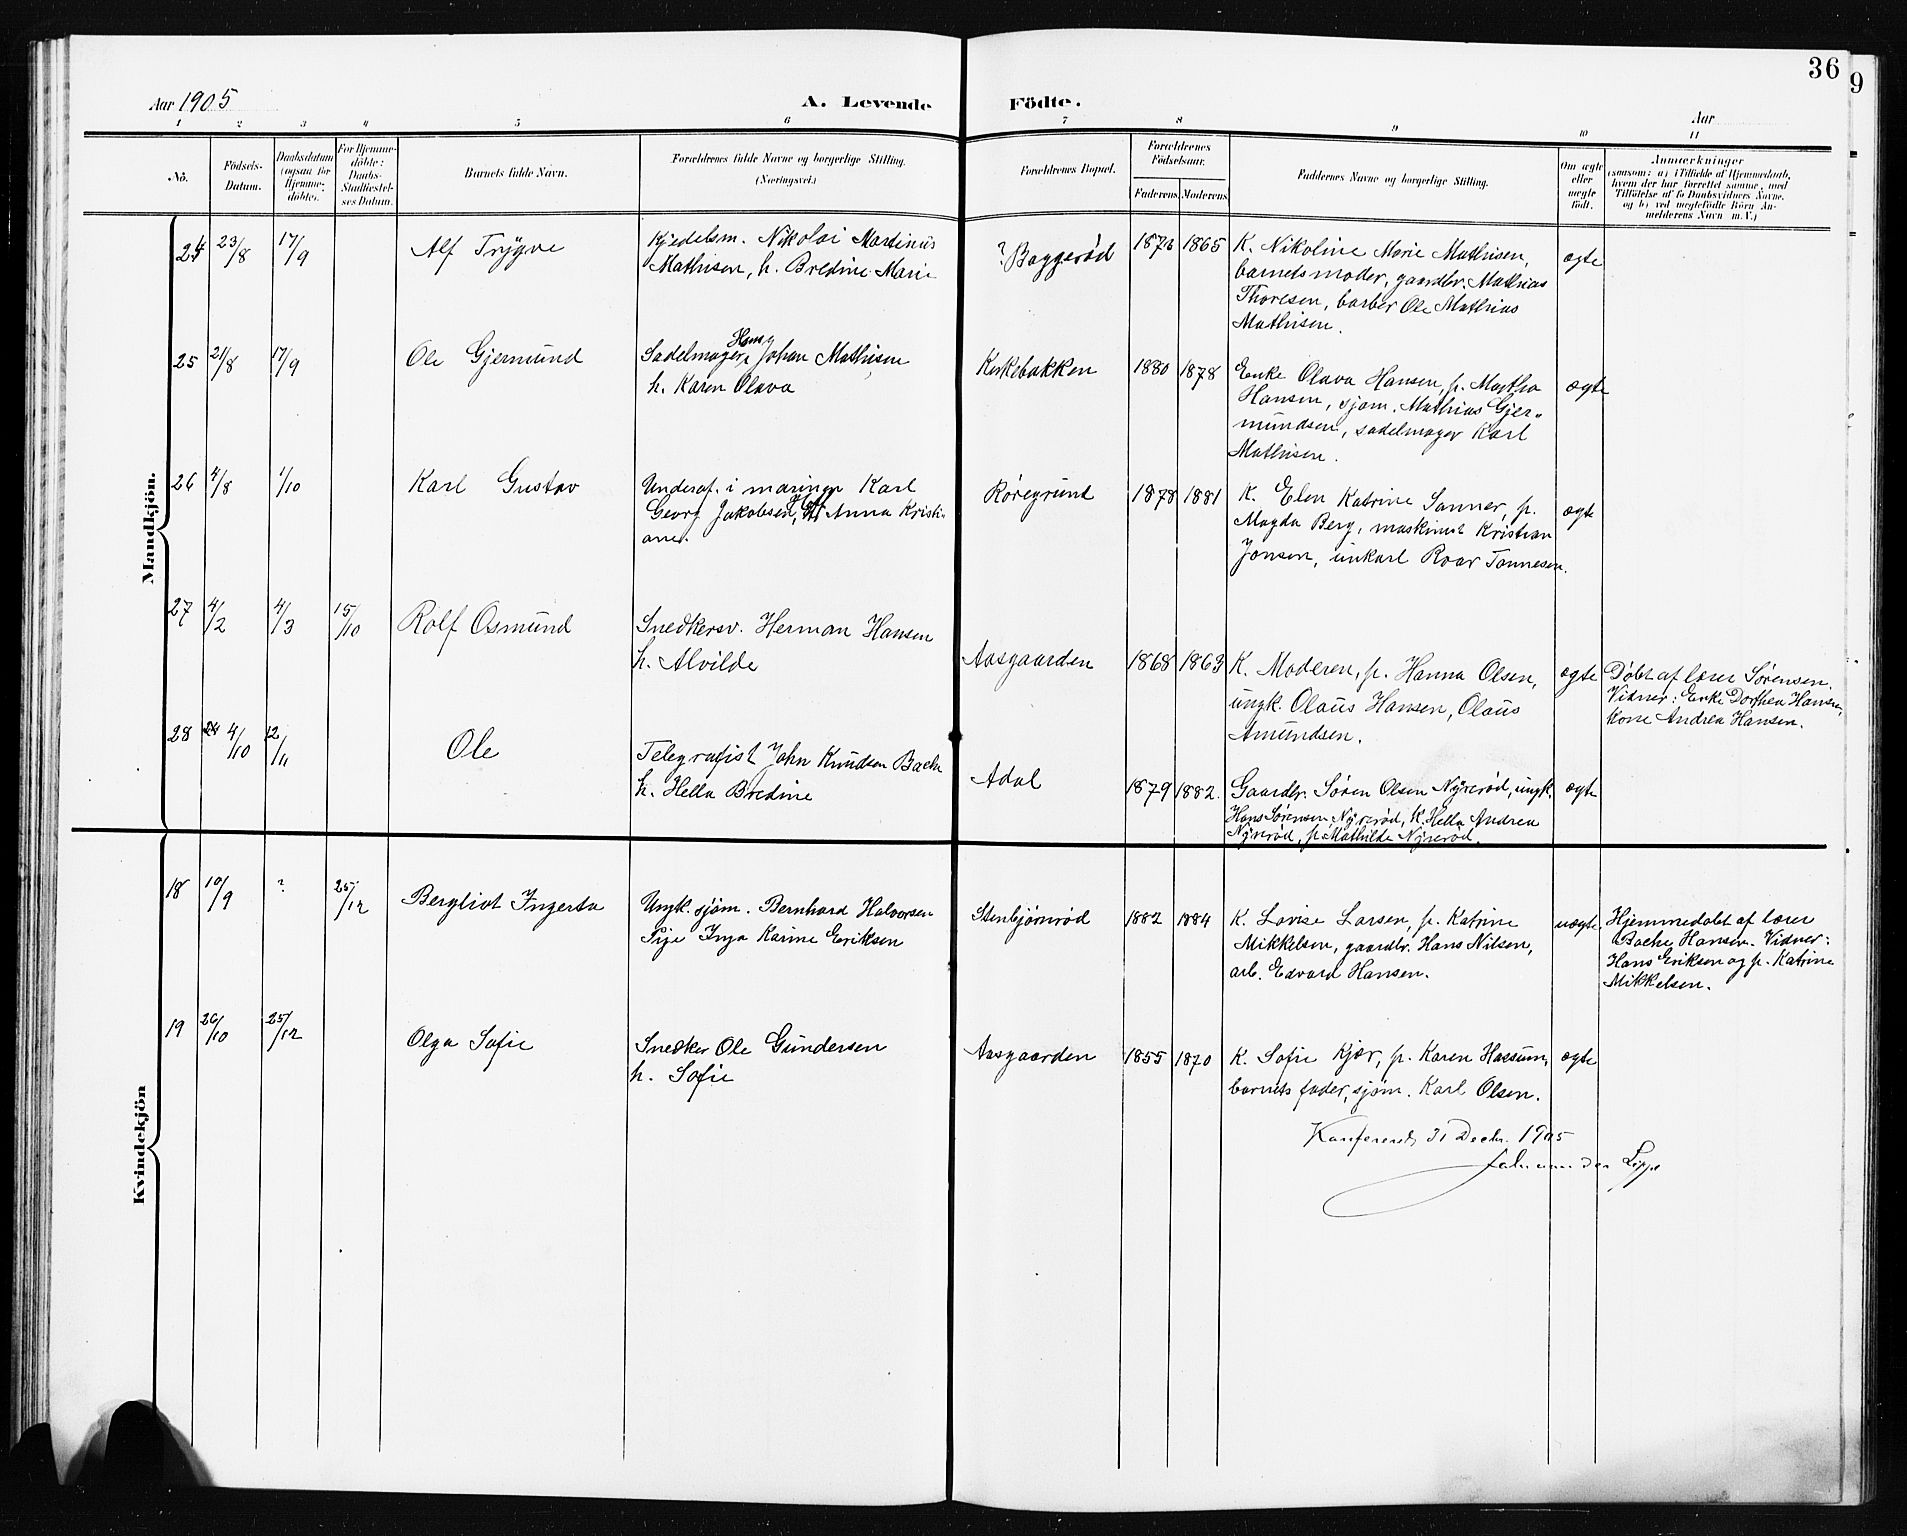 36
9
Aar 1905
A. Levende
Födte.
Aar
1 2 3 4 5 6 7 8 9 10 11
No.
Födsels-
Datum.
Daabsdatum
(ogsaa for
Hjemme-
döbte).
For Hjemme-
döbte:
Daabs-
Stadfæstel-
ses Datum.
Barnets fulde Navn.
Forældrenes fulde Navne og borgerlige Stilling.
(Næringsvei.)
Forældrenes Bopæl.
Forældrenes
Födselsaar.
Faderens. Moderens.
Faddernes Navne og borgerlige Stilling.
Om ægte
eller
uægte
födt.
Anmærkninger
(saasom: a) i Tilfælde af Hjemmedaab,
hvem der har forrettet samme, med
Tilföielse af to Daabsvidners Navne,
og b) ved uægtefödte Börn An-
melderens Navn m. V.)
Mandkjön.
24 23/8 17/9
Alf Trygve
Kjedelsm. Nikolai Martinius
Mathisen, h. Bredine Marie
? Baggerød
1865
K. Nikoline Marie Mathisen,
barnets moder, gaardbr. Mathias
Thoresen, barber Ole Mathias
Mathisen.
ægte
25 21/8 17/9
Ole Gjermund
Hans
Sadelmager, Johan Mathisen
h. Karen Olava
Kirkebakken
1880 1878
Enke Olava Hansen, p. Martha
Hansen, sjøm. Mathias Gjer-
mundsen, sadelmager Karl
Mathisen.
ægte
26 4/8 1/10
Karl Gustav
Underof. i marinen Karl
Georg Jakobsen, Anna Kristi-
ane.
Røregrund
1878 1881
K. Elen Katrine Sanner, p.
Magda Berg, maskinist Kristian
Jonsen, unkarl Roar Tønnesen.
ægte
27 4/2 4/3 15/10
Rolf Osmund
Snedkersv. Herman Hansen
h. Alvilde
Aasgaarden
1868 1863
K. Moderen, p. Hanna Olsen,
ungk. Olaus Hansen, Olaus
Amundsen.
ægte
Døbt af lærer Sørensen.
Vidner: Enke Dorthea Hansen,
kone Andrea Hansen.
28 4/10 12/11
Ole
Telegrafist John Knudsen Bache
h. Hella Bredine
Adal
1879 1882.
Gaardbr. Søren Olsen Nyrerød, ungk.
Hans Sørensen Nyrerød, K. Hella Andrea
Nyrerød, p. Mathilde Nyrerød.
ægte
Kvindekjön
18 10/9 ? 25/12
Bergliot Ingerta
Ungk. sjøm. Bernhard Halvorsen
Pige Inga Karine Eriksen
Stenbjørnrød
1882 1884
K. Lovise Larsen, p. Katrine
Mikkelsen, gaardbr. Hans Nilsen,
arb. Edvard Hansen.
uægte
Hjemmedøbt af lærer
Bache Hansen. Vidner:
Hans Eriksen og p. Katrine
Mikkelsen.
19 26/10 25/12
Olga Sofie
Snedker Ole Gundersen
h. Sofie
Aasgaarden
1855 1870
K. Sofie Kjær, p. Karen Hassum,
barnets fader, sjøm. Karl Olsen.
ægte
Konfereret 31 Decbr. 1905